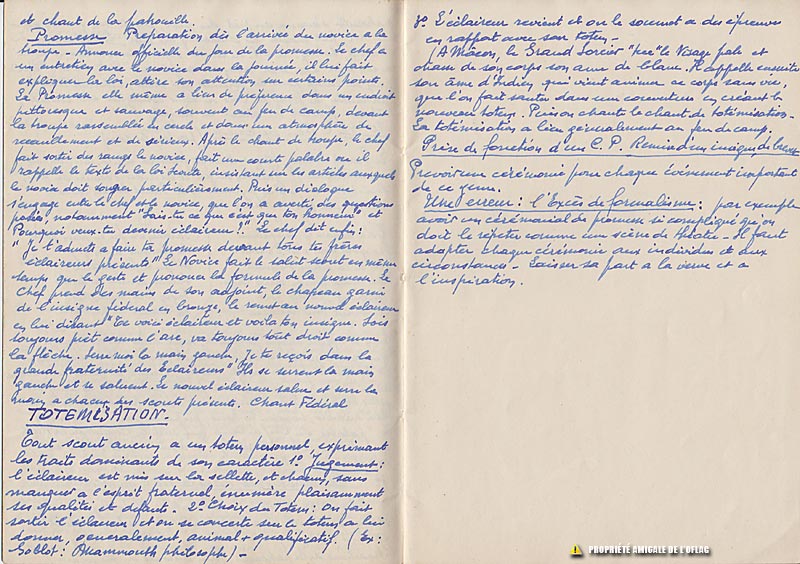 et chant de la patrouille.
Promesse Preparation dès l'arrivée du novice a la
troupe - Annonce officielle du jour de la promesse. Le chef a
un entretien avec le novice dans la journée, il lui fait
expliquer la loi, attire son attention sur certains points.
La Promesse elle même a lieu de préférence dans un endroit
pittoresque et sauvage, souvent au feu de camp, devant
la troupe rassemblée en cercle et dans une atmosphère de
recueillement et de sérieux. Après le chant de troupe, le chef
fait sortir des rangs le novice, fait un courte palabre ou il
rappelle le texte de la loi scoute, insistant sur les articles auxquels
le novice doit songer particulièrement. Puis un dialogue
s'engage entre le chef et le novice, que l'on a averti, des questions
posées, notamment "Sais-tu ce que c'est que ton honneur" et
Pourquoi veux-tu devenir éclaireur?" Le chef dit enfin:
"Je t'admets a faire ta promesse devant tous tes frères
éclaireurs présents" Le Novice fait le salut scout en même
temps que le geste et prononce la formule de la promesse. Le
Chef prend des mains de son adjoint, le chapeau garni
de l'insigne fédéral en bronze, le remet au nouvel éclaireur
en lui disant "Te voici éclaireur et voila ton insigne. Sois
toujours prêt comme l'arc, va toujours tout droit comme
la flèche. Serre moi la main gauche, Je te reçois dans la
grande fraternité des Eclaireurs" Ils se serrent la main
gauche et se saluent. Le nouvel éclaireur salue et serre la
main a chacun des scouts présents. Chant Fédéral
TOTEMISATION.
Tout scout ancien a un totem personnel exprimant
les traits dominants de son caractère 1° Jugement:
l'éclaireur est mis sur la sellette, et chacun, sans
manquer a l'esprit fraternel, énumère plaisamment
ses qualités et défauts. 2° Choix du Totem: On fait
sortir l'éclaireur et on se concerte sur le totem a lui
donner, generalement, animal + qualificatif. (Ex:
Goblot: Mammouth philosophe) -
3° L'éclaireur revient et on le soumet a des épreuves
en rapport avec son totem -
(A Mâcon, le Grand Sorcier "tue" le Visage pale et
chasse de son corps son ame de blanc. Il appelle ensuite
son âme d'Indien qui vient animer ce corps sans vie,
que l'on fait sauter dans une couverture en créant le
nouveau totem. Puis on chante le chant de totémisation.
La totémisation a lieu généralement au feu de camp.
Prise de fonction d'un C.P. Remise d'un insigne de
Prévoir une cérémonie pour chaque événement important
de ce genre.
Une erreur: l'Excès de formalisme: par exemple
avoir un cérémonial de promesse si compliqué qu'on
doit le répéter comme une scène de théâtre - Il faut
adapter chaque cérémonie aux individus et aux
circonstances - Laisser sa part a la verve et a
l'inspiration.
PROPRIÉTÉ AMICALE DE L'OFLAG